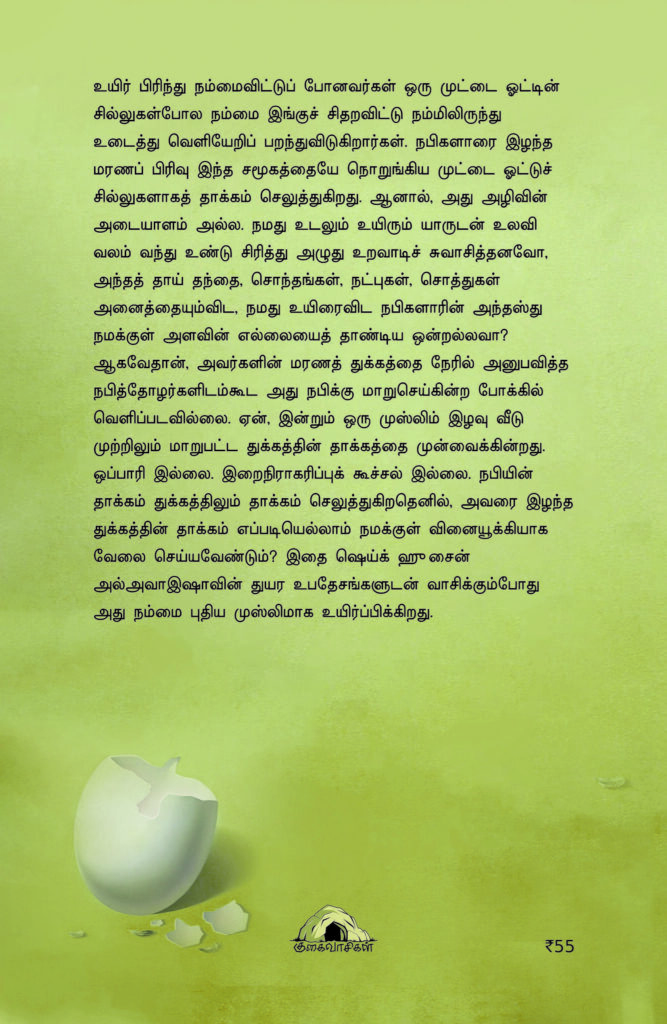 உயிர் பிரிந்து நம்மைவிட்டுப் போனவர்கள் ஒரு முட்டை ஓட்டின்
சில்லுகள்போல நம்மை இங்குச் சிதறவிட்டு நம்மிலிருந்து
உடைத்து வெளியேறிப் பறந்துவிடுகிறார்கள். நபிகளாரை இழந்த
மரணப் பிரிவு இந்த சமூகத்தையே நொறுங்கிய முட்டை ஓட்டுச்
சில்லுகளாகத் தாக்கம் செலுத்துகிறது. ஆனால், அது அழிவின்
அடையாளம் அல்ல. நமது உடலும் உயிரும் யாருடன் உலவி
வலம் வந்து உண்டு சிரித்து அழுது உறவாடிச் சுவாசித்தனவோ,
அந்தத் தாய் தந்தை, சொந்தங்கள், நட்புகள், சொத்துகள்
அனைத்தையும்விட, நமது உயிரைவிட நபிகளாரின் அந்தஸ்து
நமக்குள் அளவின் எல்லையைத் தாண்டிய ஒன்றல்லவா?
ஆகவேதான், அவர்களின் மரணத் துக்கத்தை நேரில் அனுபவித்த
நபித்தோழர்களிடம்கூட அது நபிக்கு மாறுசெய்கின்ற போக்கில்
வெளிப்படவில்லை. ஏன், இன்றும் ஒரு முஸ்லிம் இழவு வீடு
முற்றிலும் மாறுபட்ட துக்கத்தின் தாக்கத்தை முன்வைக்கின்றது.
ஒப்பாரி இல்லை. இறைநிராகரிப்புக் கூச்சல் இல்லை. நபியின்
தாக்கம் துக்கத்திலும் தாக்கம் செலுத்துகிறதெனில், அவரை இழந்த
துக்கத்தின் தாக்கம் எப்படியெல்லாம் நமக்குள் வினையூக்கியாக
வேலை செய்யவேண்டும்? இதை ஷெய்க் ஹுசைன்
அல்அவாஇஷாவின் துயர உபதேசங்களுடன் வாசிக்கும்போது
அது நம்மை புதிய முஸ்லிமாக உயிர்ப்பிக்கிறது.
குகைவாசிகள்
₹55